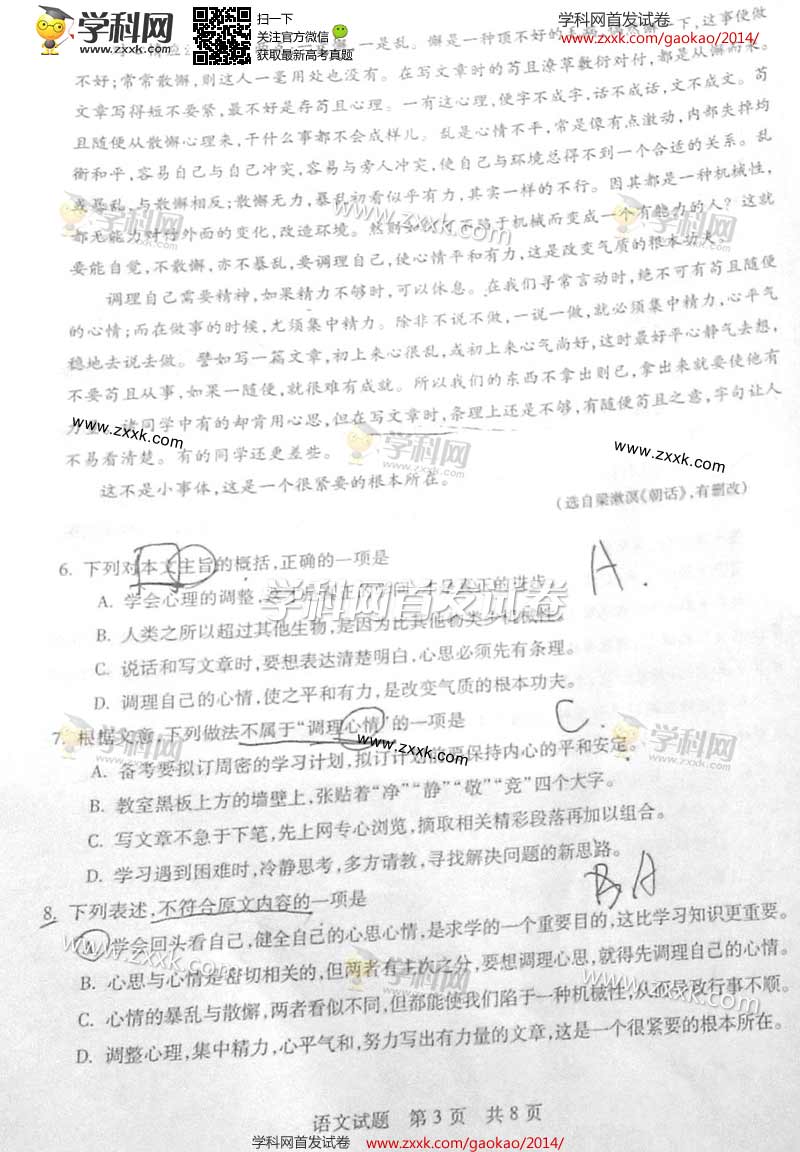 学科网
www.zxxk.com
扫一下
关注官方微信
获取最新高考真题
学科网首发试卷
www.zxxk.com/gaokao/2014/
一是懈,一是乱。懈是一种顶不好的 下,这事便做
不好;常常散懈,则这人一毫用处也没有。在写文章时的苟且潦草敷衍对付,都是从懈而来。
文章写得短不要紧,最不好是存苟且心理。一有这心理,便字不成字,话不成话,文不成文。苟
且随便从散懈心理来,干什么事都不会成样儿。乱是心情不平,常是像有点激动,内部失掉均
衡和平,容易自己与自己冲突,容易与旁人冲突,使自己与环境总得不到一个合适的关系。乱
或暴乱,与散懈相反;散懈无力,暴乱初看似乎有力,其实一样的不行。因其都是一种机械性,
都无能力对付外面的变化,改造环境。然则如何可不陷于机械而变成一个有能力的人?这就
要能自觉,不散懈,亦不暴乱,要调理自己,使心情平和有力,这是改变气质的根本功夫。
调理自己需要精神,如果精力不够时,可以休息。在我们寻常言动时,绝不可有苟且随便
的心情;而在做事的时候,尤须集中精力。除非不说不做,一说一做,就必须集中精力,心平气
稳地去说去做。譬如写一篇文章,初上来心很乱,或初上来心气尚好,这时最好平心静气去想,
不要苟且从事,如果一随便,就很难有成就。所以我们的东西不拿出则已,拿出来就要使他有
力量。诸同学中有的却肯用心思,但在写文章时,条理上还是不够,有随便苟且之意,字句让人
不易看清楚。有的同学还更差些。
这不是小事体,这是一个很紧要的根本所在。
(选自梁漱溟《朝话》,有删改)
6. 下列对本文主旨的概括,正确的一项是
A.
A. 学会心理的调整,是 正的 正的进步。
B. 人类之所以超过其他生物,是因为比其他物类少机械性。
C. 说话和写文章时,要想表达清楚明白,心思必须先有条理。
D. 调理自己的心情,使之平和有力,是改变气质的根本功夫。
7. 根据文章,下列做法不属于“调理心情”的一项是
C.
A. 备考要拟订周密的学习计划,拟订计划前要保持内心的平和安定。
B. 教室黑板上方的墙壁上,张贴着“净”“静”“敬”“竞”四个大字。
C. 写文章不急于下笔,先上网专心浏览,摘取相关精彩段落再加以组合。
D. 学习遇到困难时,冷静思考,多方请教,寻找解决问题的新思路。
8. 下列表述,不符合原文内容的一项是
BA
A 学会回头看自己,健全自己的心思心情,是求学的一个重要目的,这比学习知识更重要。
B. 心思与心情是密切相关的,但两者有主次之分,要想调理心思,就得先调理自己的心情。
C. 心情的暴乱与散懈,两者看似不同,但都能使我们陷于一种机械性,从而导致行事不顺。
D. 调整心理,集中精力,心平气和,努力写出有力量的文章,这是一个很紧要的根本所在。
语文试题 第3页 共8页
学科网首发试卷 www.zxxk.com/gaokao/2014/